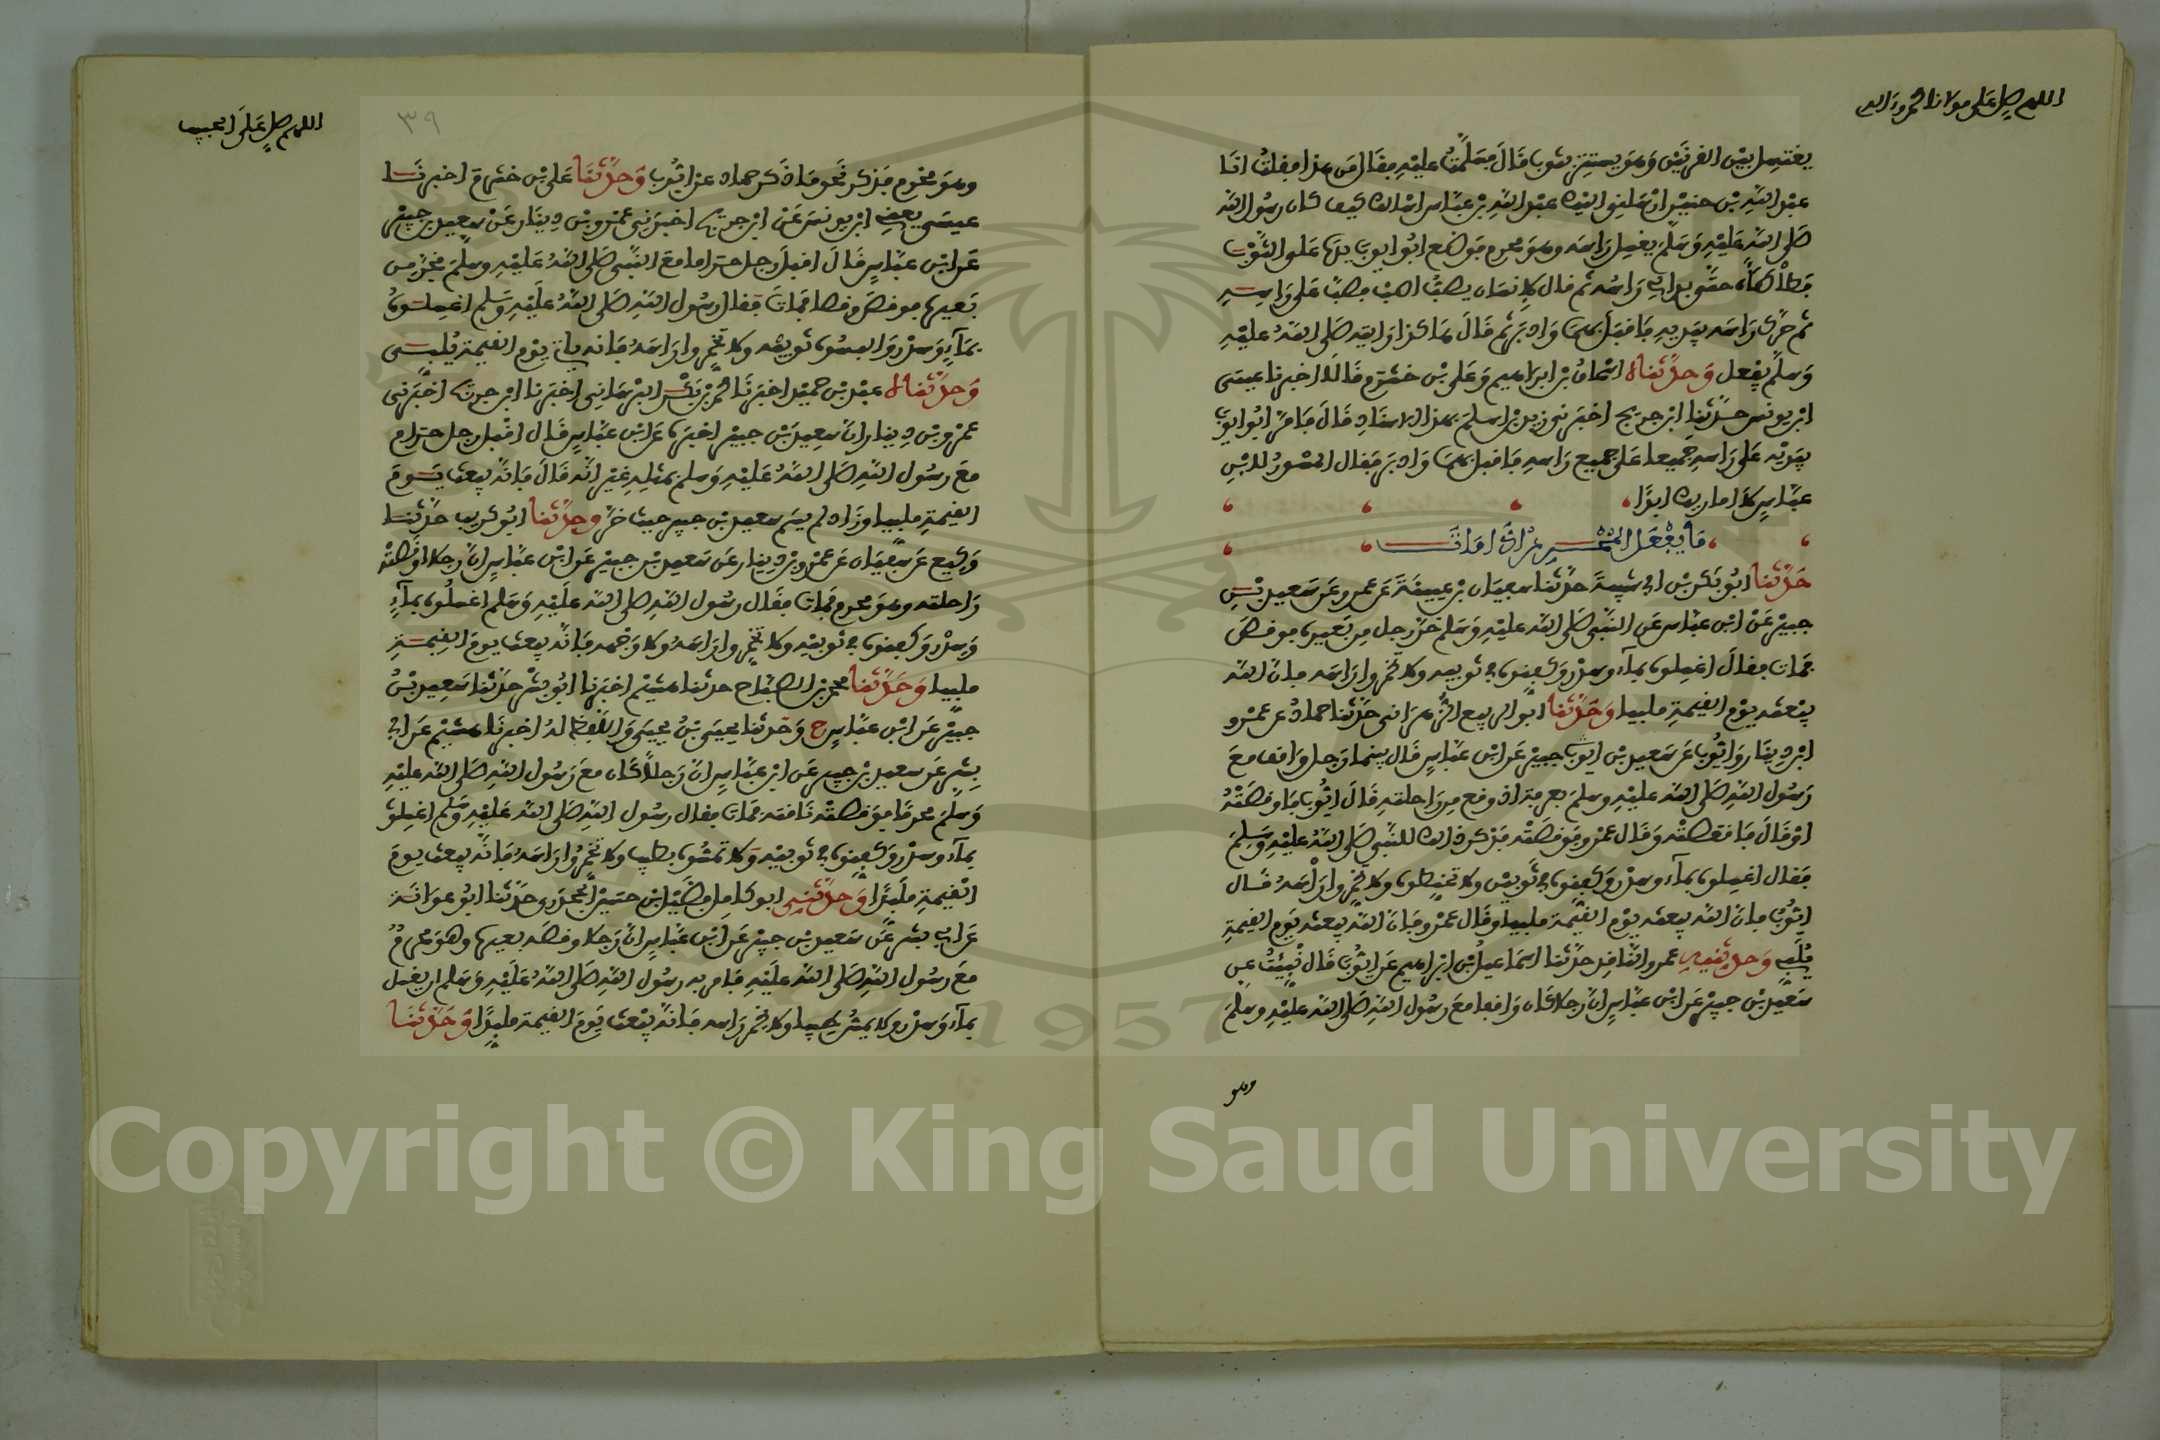 اللهم صل على مولانا محمد وءاله
يغتسل بين القرنين وهو يستتر بثوب قال فسلمت عليه فقال من هذا فقلت انا
عبد الله بن حنين ارسلني اليك عبد الله بن عباس اسالك كيف كان رسول الله
صلى الله عليه وسلم يغسل راسه وهو محرم فوضع ابو ايوب يده على الثوب
فطاطاه حتى بدا لي راسه ثم قال لانسان يصب اصبب فصب على راسه
ثم حرك راسه بيديه فاقبل بهما وادبر ثم قال هكذا رايته صلى الله عليه
وسلم يفعل وحدثناه اسحاق بن ابراهيم وعلي بن خشرم قالا اخبرنا عيسى
ابن يونس حدثنا ابن جريج اخبرني زيد بن اسلم بهذا الاسناد قال فامر ابو ايوب
بيديه على راسه جميعا على جميع راسه فاقبل بهما وادبر فقال المسور لابن
عباس لا اماريك ابدا
ما يفعل المحرم اذا مات
حدثنا ابو بكر بن ابي شيبة حدثنا سفيان بن عيينة عن عمرو عن سعيد بن
جبير عن ابن عباس عن النبي صلى الله عليه وسلم خر رجل من بعيره فوقص
فمات فقال اغسلوه بماء وسدر وكفنوه في ثوبيه ولا تخمروا راسه فان الله
يبعثه يوم القيمة ملبيا وحدثنا ابو الربيع الزهراني حدثنا حماد عن عمرو
ابن دينار وايوب عن سعيد بن ايوب جبير عن ابن عباس قال بينما رجل واقف مع
رسول الله صلى الله عليه وسلم بعرفة اذ وقع من راحلته قال ايوب فاوقصته
او قال فاقعصته وقال عمرو فوقصته فذكر ذلك للنبي صلى الله عليه وسلم
فقال اغسلوه بماء وسدر وكفنوه في ثوبين ولا تحنطوه ولا تخمروا راسه قال
ايوب فان الله يبعثه يوم القيمة ملبيا وقال عمرو فان الله يبعثه يوم القيمة
يلبي وحدثنيه عمرو الناقد حدثنا اسماعيل بن ابراهيم عن ايوب قال نبئت عن
سعيد بن جبير عن ابن عباس ان رجلا كان واقفا مع رسول الله صلى الله عليه وسلم
وهو
اللهم صل على الحبيب
٣٩
وهو محرم فذكر نحو ما ذكر حماد عن ايوب وحدثنا علي بن خشرم اخبرنا
عيسى يعني ابن يونس عن ابن جريج اخبرني عمرو بن دينار عن سعيد بن جبير
عن ابن عباس قال اقبل رجل حراما مع النبي صلى الله عليه وسلم فخر من
بعيره فوقص وقصا فمات فقال رسول الله صلى الله عليه وسلم اغسلوه
بماء وسدر والبسوه ثوبيه ولا تخمروا راسه فانه ياتي يوم القيمة يلبي
وحدثناه عبد بن حميد اخبرنا محمد بن بكر البرساني اخبرنا ابن جريج اخبرني
عمرو بن دينار ان سعيد بن جبير اخبره عن ابن عباس قال اقبل رجل حرام
مع رسول الله صلى الله عليه وسلم بمثله غير انه قال فانه يبعث يوم
القيمة ملبيا وزاد لم يسم سعيد بن جبير حيث خر وحدثنا ابو كريب حدثنا
وكيع عن سفيان عن عمرو بن دينار عن سعيد بن جبير عن ابن عباس ان رجلا اوقصته
راحلته وهو محرم فمات فقال رسول الله صلى الله عليه وسلم اغسلوه بماء
وسدر وكفنوه في ثوبيه ولا تخمروا راسه ولا وجهه فانه يبعث يوم القيمة
ملبيا وحدثنا محمد بن الصباح حدثنا هشيم اخبرنا ابو بشر حدثنا سعيد بن
جبير عن ابن عباس ح وحدثنا يحيى بن يحيى واللفظ له اخبرنا هشيم عن ابي
بشر عن سعيد بن جبير عن ابن عباس ان رجلا كان مع رسول الله صلى الله عليه
وسلم محرما فوقصته ناقته فمات فقال رسول الله صلى الله عليه وسلم اغسلوه
بماء وسدر وكفنوه في ثوبيه ولا تمسوه بطيب ولا تخمروا راسه فانه يبعث يوم
القيمة ملبدا وحدثني ابو كامل فضيل بن حسين الجحدري حدثنا ابو عوانة
عن ابي بشر عن سعيد بن جبير عن ابن عباس ان رجلا وقصه بعيره وهو محرم
مع رسول الله صلى الله عليه فامر به رسول الله صلى الله عليه وسلم ان يغسل
بماء وسدر ولا يمس طيبا ولا يخمر راسه فانه يبعث يوم القيمة ملبدا وحدثنا
1957
Copyright © King Saud University